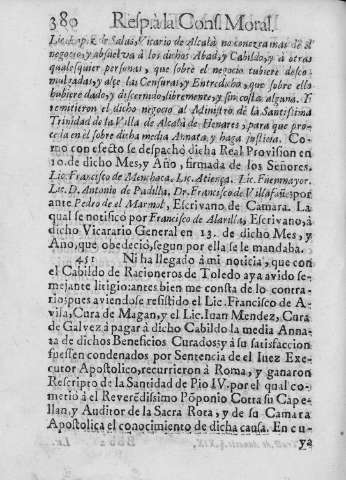 380 Resp. à la Cons. Moral.
Lic. Lope de Salas, Vicario de Alcalà no conozca mas de el
negocio, y absuelva à los dichos Abad, y Cabildo, y à otras
qualesquier personas, que sobre el negocio tubiere desco-
mulgadas, y alçe las Censuras, y Entredicho, que sobre ello
hubiere dado, y discernido, libremente, y sin costa alguna. Y
remitieron el dicho negocio al Ministro de la Santissima
Trinidad de la Villa de Alcalà de Henares, para que pro-
ceda en el sobre dicha media Annata, y haga justicia. Co-
mo con efecto se despachó dicha Real Provision en
10. de dicho Mes, y Año, firmada de los Señores.
Lic. Francisco de Menchaca, Lic. Atienga. Lic. Fuenmayor.
Lic. D. Antonio de Padilla, Dr. Francisco de Villafañe: por
ante Pedro de el Marmol, Escrivano de Camara. La
qual se notificò por Francisco de Alarilla, Escrivano, à
dicho Vicario General en 13. de dicho Mes, y
Año, que obedeciò, segun por ella se le mandaba.
451 Ni ha llegado à mi noticia, que con
el Cabildo de Racioneros de Toledo aya avido se-
mejante litigio: antes bien me consta de lo contra-
rio; pues aviendose resistido el Lic. Francisco de A-
vila, Cura de Magan, y el Lic. Iuan Mendez, Cura
de Galvez à pagar à dicho Cabildo la media Anna-
ta de dichos Beneficios Curados; y à su satisfaccion
fuessen condenados por Sentencia de el Iuez Exe-
cutor Apostolico, recurrieron à Roma, y ganaron
Rescripto de la Santidad de Pio IV. por el qual co-
metiò à el Reverẽdissimo Põponio Cotta su Cape-
llan, y Auditor de la Sacra Rota, y de su Camara
Apostolica el conocimiento de dicha causa. En cu-
ya